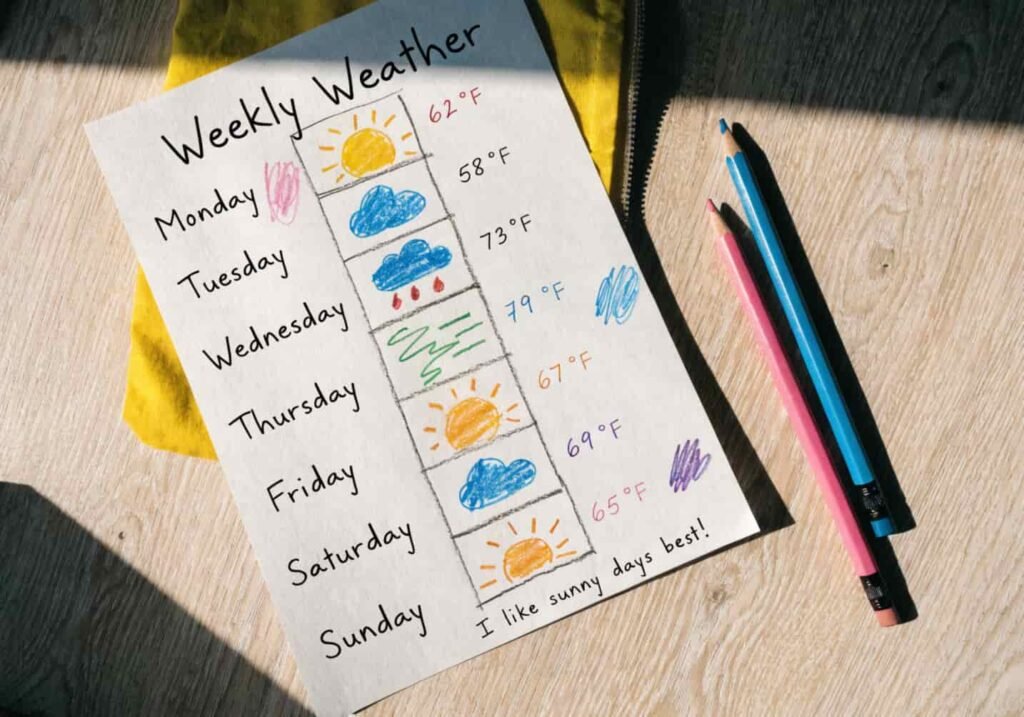 Weekly Weather
Monday 62°F
Tuesday 58°F
Wednesday 73°F
Thursday 79°F
Friday 67°F
Saturday 69°F
Sunday 65°F
I like sunny days best!